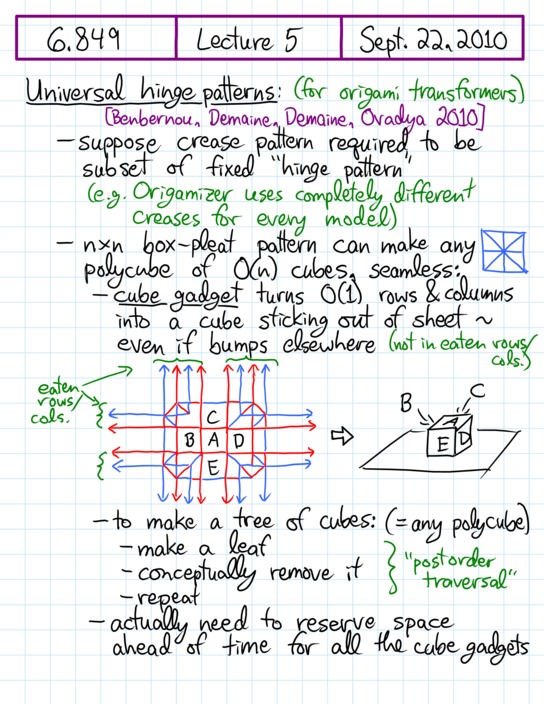 6.849 Lecture 5 Sept. 22, 2010
Universal hinge patterns: (for origami transformers)
[Benbernou, Demaine, Demaine, Ovadya 2010]
- suppose crease pattern required to be
subset of fixed "hinge pattern"
(e.g. Origamizer uses completely different
creases for every model)
- n×n box-pleat pattern can make any
polycube of O(n) cubes, seamless:
- cube gadget turns O(1) rows & columns
into a cube sticking out of sheet ~
even if bumps elsewhere (not in eaten rows/
cols.)
eaten
rows/
cols.
C
B A D
E
⇨
B C
A
E D
- to make a tree of cubes: (= any polycube)
- make a leaf
- conceptually remove it
- repeat
"postorder
traversal"
- actually need to reserve space
ahead of time for all the cube gadgets